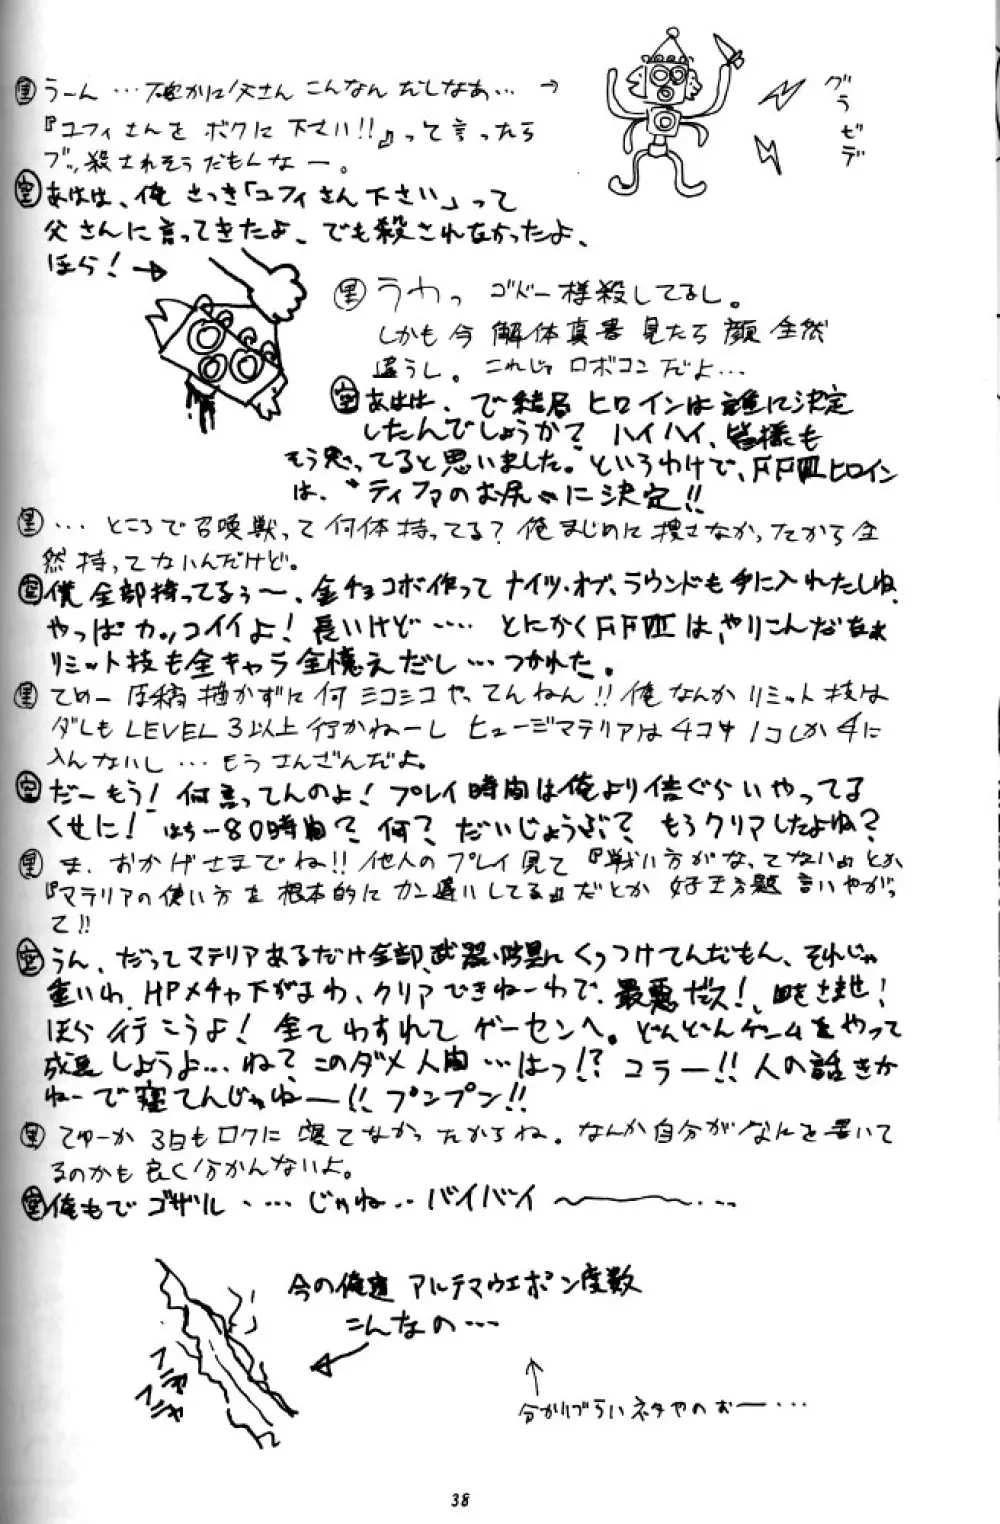 里 うーん…確かに父さんこんなんだしなあ… →
『ユフィさんをボクに下さい!!』って言ったら
ブッ殺されそうだもんなー。
グラビデ
空 あはは、俺さっき「ユフィさん下さい」って
父さんに言ってきたよ、でも殺されなかったよ、
ほら! →
里 うわっ ゴドー様殺してるし。
しかも今 解体真書 見たら 顔 全然
違うし。これじゃロボコンだよ…
空 あはは、で結局ヒロインは誰に決定
したんでしょうか? ハイハイ、皆様も
もう思ってると思いました。というわけで、FFⅦヒロイン
は、"ティファのお尻"に決定!!
里 …ところで召喚獣って何体持ってる?俺まじめに捜さなかったから全
然持ってないんだけど。
空 僕全部持ってるぅ〜、金チョコボ作ってナイツ・オブ・ラウンドも手に入れたしね、
やっぱカッコイイよ!長いけど…… とにかくFFⅦは、やりこんだなぁ
リミット技も全キャラ全憶えだし…つかれた。
里 てめー原稿描かずに何ミコミコやってんねん!!俺なんかリミット技は
ダレもLEVEL3以上行かねーし ヒュージマテリアは4コ中1コしか手に
入んないし…もうさんざんだよ。
空 だーもう!何言ってんのよ!プレイ時間は俺より倍ぐらいやってる
くせに! はちー80時間?何?だいじょうぶ? もうクリアしたよね?
里 ま、おかげさまでね!!他人のプレイ見て『戦い方がなってない』とか
『マテリアの使い方を根本的にカン違いしてる』だとか 好き放題言いやがっ
て!!
空 うん、だってマテリアあるだけ全部、武器・防具にくっつけてんだもん、それじゃ
重いわ、HPメチャ下がるわ、クリアできねーわで、最悪だス!、目をさませ!
ほら行こうよ!全てわすれてゲーセンへ。どんどんゲームをやって
成長しようよ…ね?このダメ人間…はっ!?コラー!!人の話きか
ねーで寝てんじゃねー!!プンプン!!
里 てゆーか3日もロクに寝てなかったからね。なんか自分がなにを書いて
るのかも良く分かんないよ。
空 俺もでゴザル・…じゃね‥バイバイ〜――…
今の俺達 アルテマウエポン度数
こんなの…
フニャ
フニャ
↑
分かりづらいネタやのぉー…
38